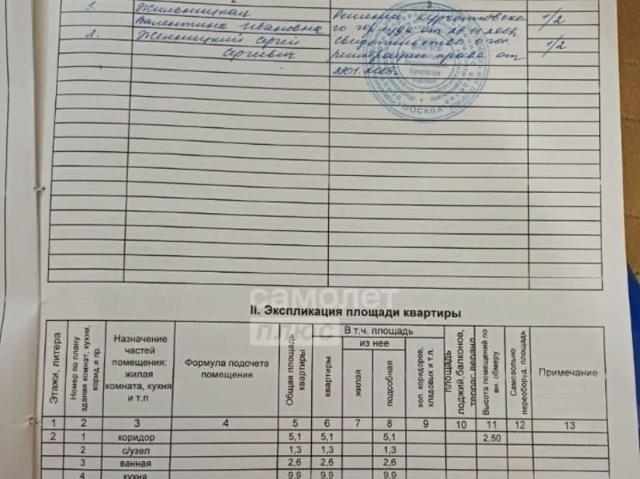 3
1. Жильницкая Решение Нукатовско- 1/2
Валентина Ивановна го р. суда от 20.11.200
2. Женницкий Сергей свидетельство о гос. 1/2
Сергеевич регистрации права от
22.01.200
МОСКВА
самолет
плюс
II. Экспликация площади квартиры
Этажи, литера
Номер по плану здания комнат, кухни, корид. и пр.
Назначение частей помещения: жилая комната, кухня и т.п
Формула подсчета помещения
Общая площадь квартиры
В т.ч. площадь
квартиры
из нее
жилая
подсобная
хол. коридоров, кладовых и т.п.
площадь лоджий, балконов, террас, веранд
Высота помещений по вн. обмеру
Самовольно переоборуд. площадь
Примечание
1 2 3 4 5 6 7 8 9 10 11 12 13
2 1 коридор 5,1 5,1 5,1 2,50
2 с/узел 1,3 1,3 1,3
3 ванная 2,6 2,6 2,6
4 кухня 9,9 9,9 9,9